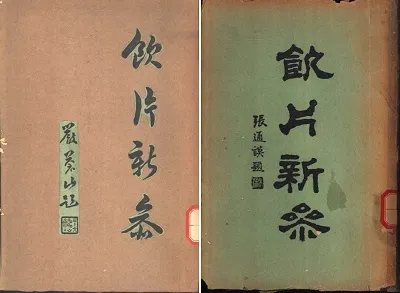 飲片新參
嚴蒼山題
飲片新參
張通謨題